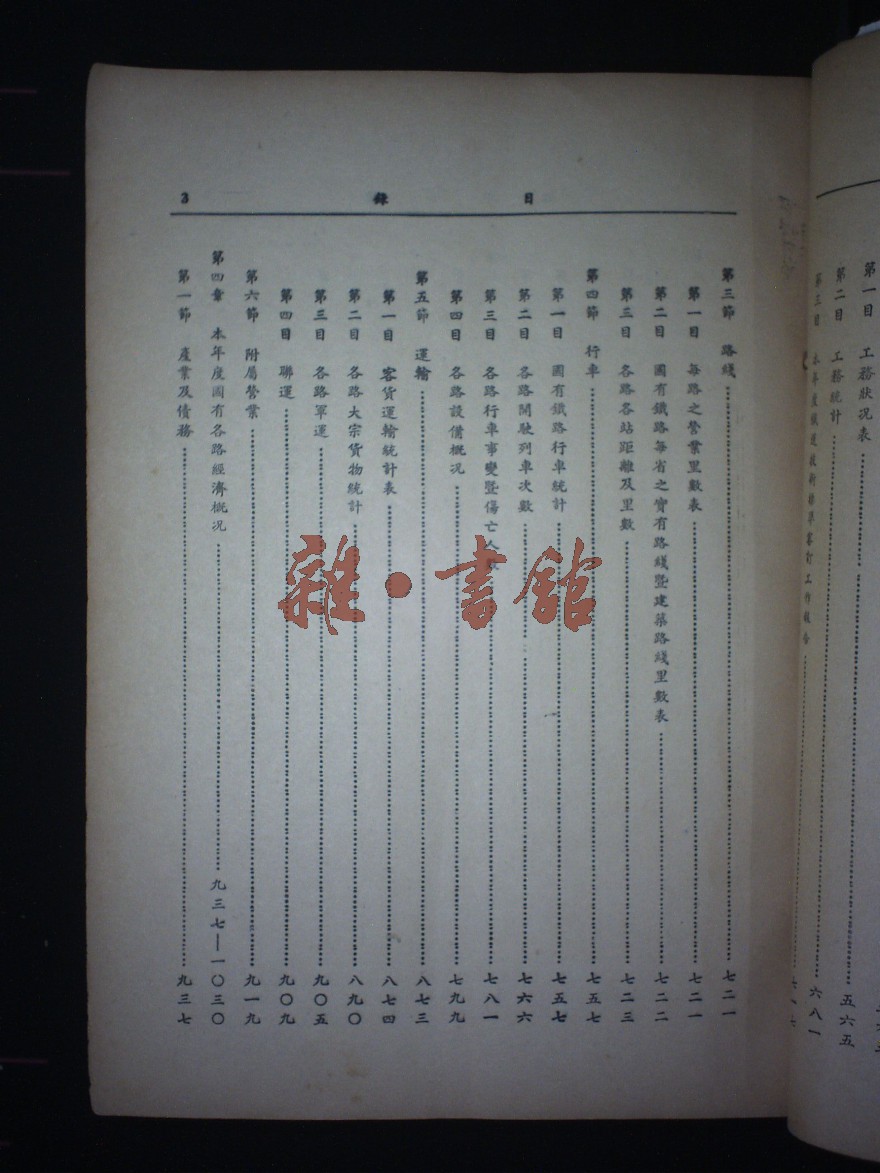 第一目 工務狀況表
第二目 工務統計 五六五
第三目 本年度 工作報告 六八一
目 錄 3
第三節 路綫 七二一
第一目 每路之營業里數表 七二一
第二目 國有鐵路每省之實有路綫暨建築路綫里數表 七二二
第三目 各路各站距離及里數 七二三
第四節 行車 七五七
第一目 國有鐵路行車統計 七五七
第二目 各路開駛列車次數 七六六
第三目 各路行車事變暨傷亡人數 七八一
第四目 各路設備概况 七九九
第五節 運輸 八七三
第一目 客貨運輸統計表 八七四
第二目 各路大宗貨物統計 八九〇
第三目 各路軍運 九〇五
第四目 聯運 九〇九
第六節 附屬營業 九一九
第四章 本年度國有各路經濟概况 九三七—一〇三〇
第一節 產業及債務 九三七
雜·書館